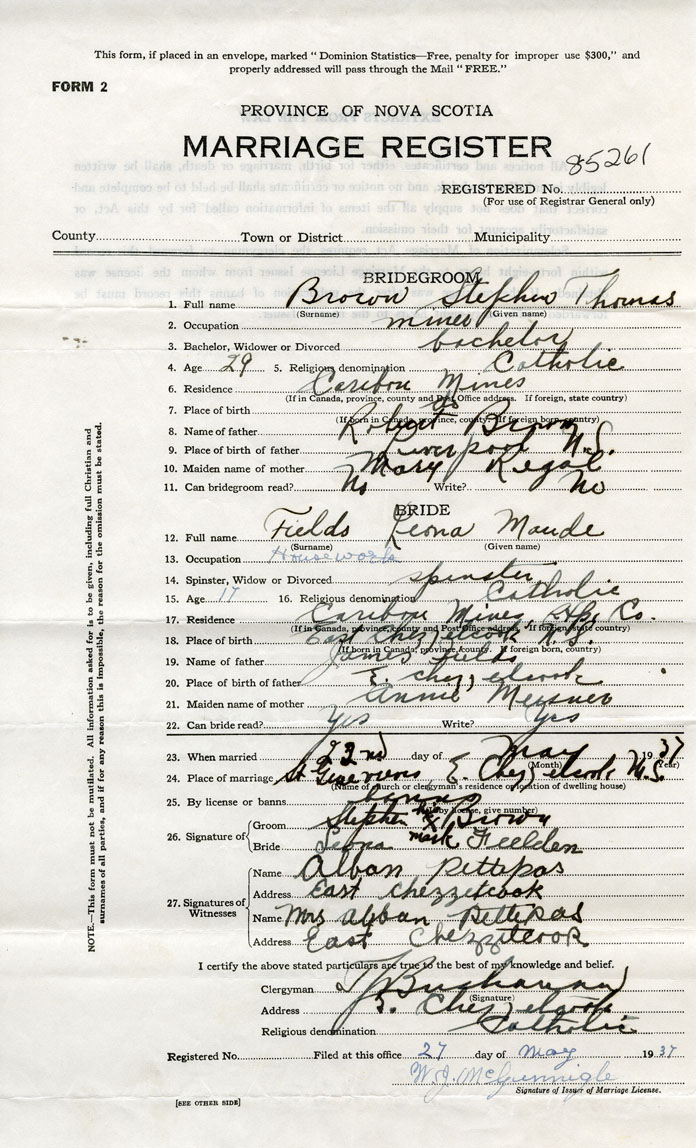 This form, if placed in an envelope, marked "Dominion Statistics—Free, penalty for improper use $300," and
properly addressed will pass through the Mail "FREE."
FORM 2
PROVINCE OF NOVA SCOTIA
MARRIAGE REGISTER
85261
REGISTERED No.
(For use of Registrar General only)
County Town or District Municipality
BRIDEGROOM
1. Full name Brown Stephen Thomas
(Surname) (Given name)
2. Occupation miner
3. Bachelor, Widower or Divorced bachelor
4. Age 29 5. Religious denomination Catholic
6. Residence Caribou Mines
(If in Canada, province, county and Post Office address. If foreign, state country)
7. Place of birth do
(If born in Canada, province, county. If foreign born, country)
8. Name of father Robert Brown
9. Place of birth of father Liverpool N.S.
10. Maiden name of mother Mary Regal
11. Can bridegroom read? No Write? No
BRIDE
12. Full name Fields Leona Maude
(Surname) (Given name)
13. Occupation Housework
14. Spinster, Widow or Divorced spinster
15. Age 17 16. Religious denomination Catholic
17. Residence Caribou Mines, Co.
(If in Canada, province, county and Post Office address. If foreign state country)
18. Place of birth East Chezzetcook, N.S.
(If born in Canada, province, county. If foreign born, country)
19. Name of father James Fields
20. Place of birth of father E. Chezzetcook
21. Maiden name of mother Annie Meisner
22. Can bride read? Yes Write? Yes
23. When married 22nd day of May 1937
(Month) (Year)
24. Place of marriage St E. Chezzetcook N.S.
(Name of church or clergyman's residence or location of dwelling house)
25. By license or banns banns
(If by license, give number)
26. Signature of
Groom Stephen his X mark Brown
Bride Leona Fielden
27. Signatures of Witnesses
Name Alban Pettipas
Address East Chezzetcook
Name Mrs Alban Pettipas
Address East Chezzetcook
I certify the above stated particulars are true to the best of my knowledge and belief.
Clergyman Buchanan
(Signature)
Address E. Chezzetcook
Religious denomination Catholic
Registered No. Filed at this office 27 day of May 1937
W.J. McGunnigle
Signature of Issuer of Marriage License.
[SEE OTHER SIDE]
NOTE.—This form must not be mutilated. All information asked for is to be given, including full Christian and
surnames of all parties, and if for any reason this is impossible, the reason for the omission must be stated.